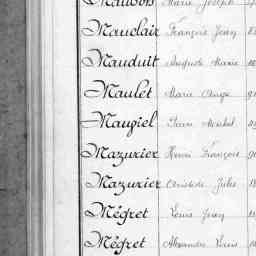 Marie Joseph
Mauclair François Jean
Mauduit Auguste Marie
Maulet Marie Ange
Maupiel Pierre Michel
Mazurier Henri François
Mazurier Aristide Jules
Mégret Louis Jean
Mégret Alexandre Louis